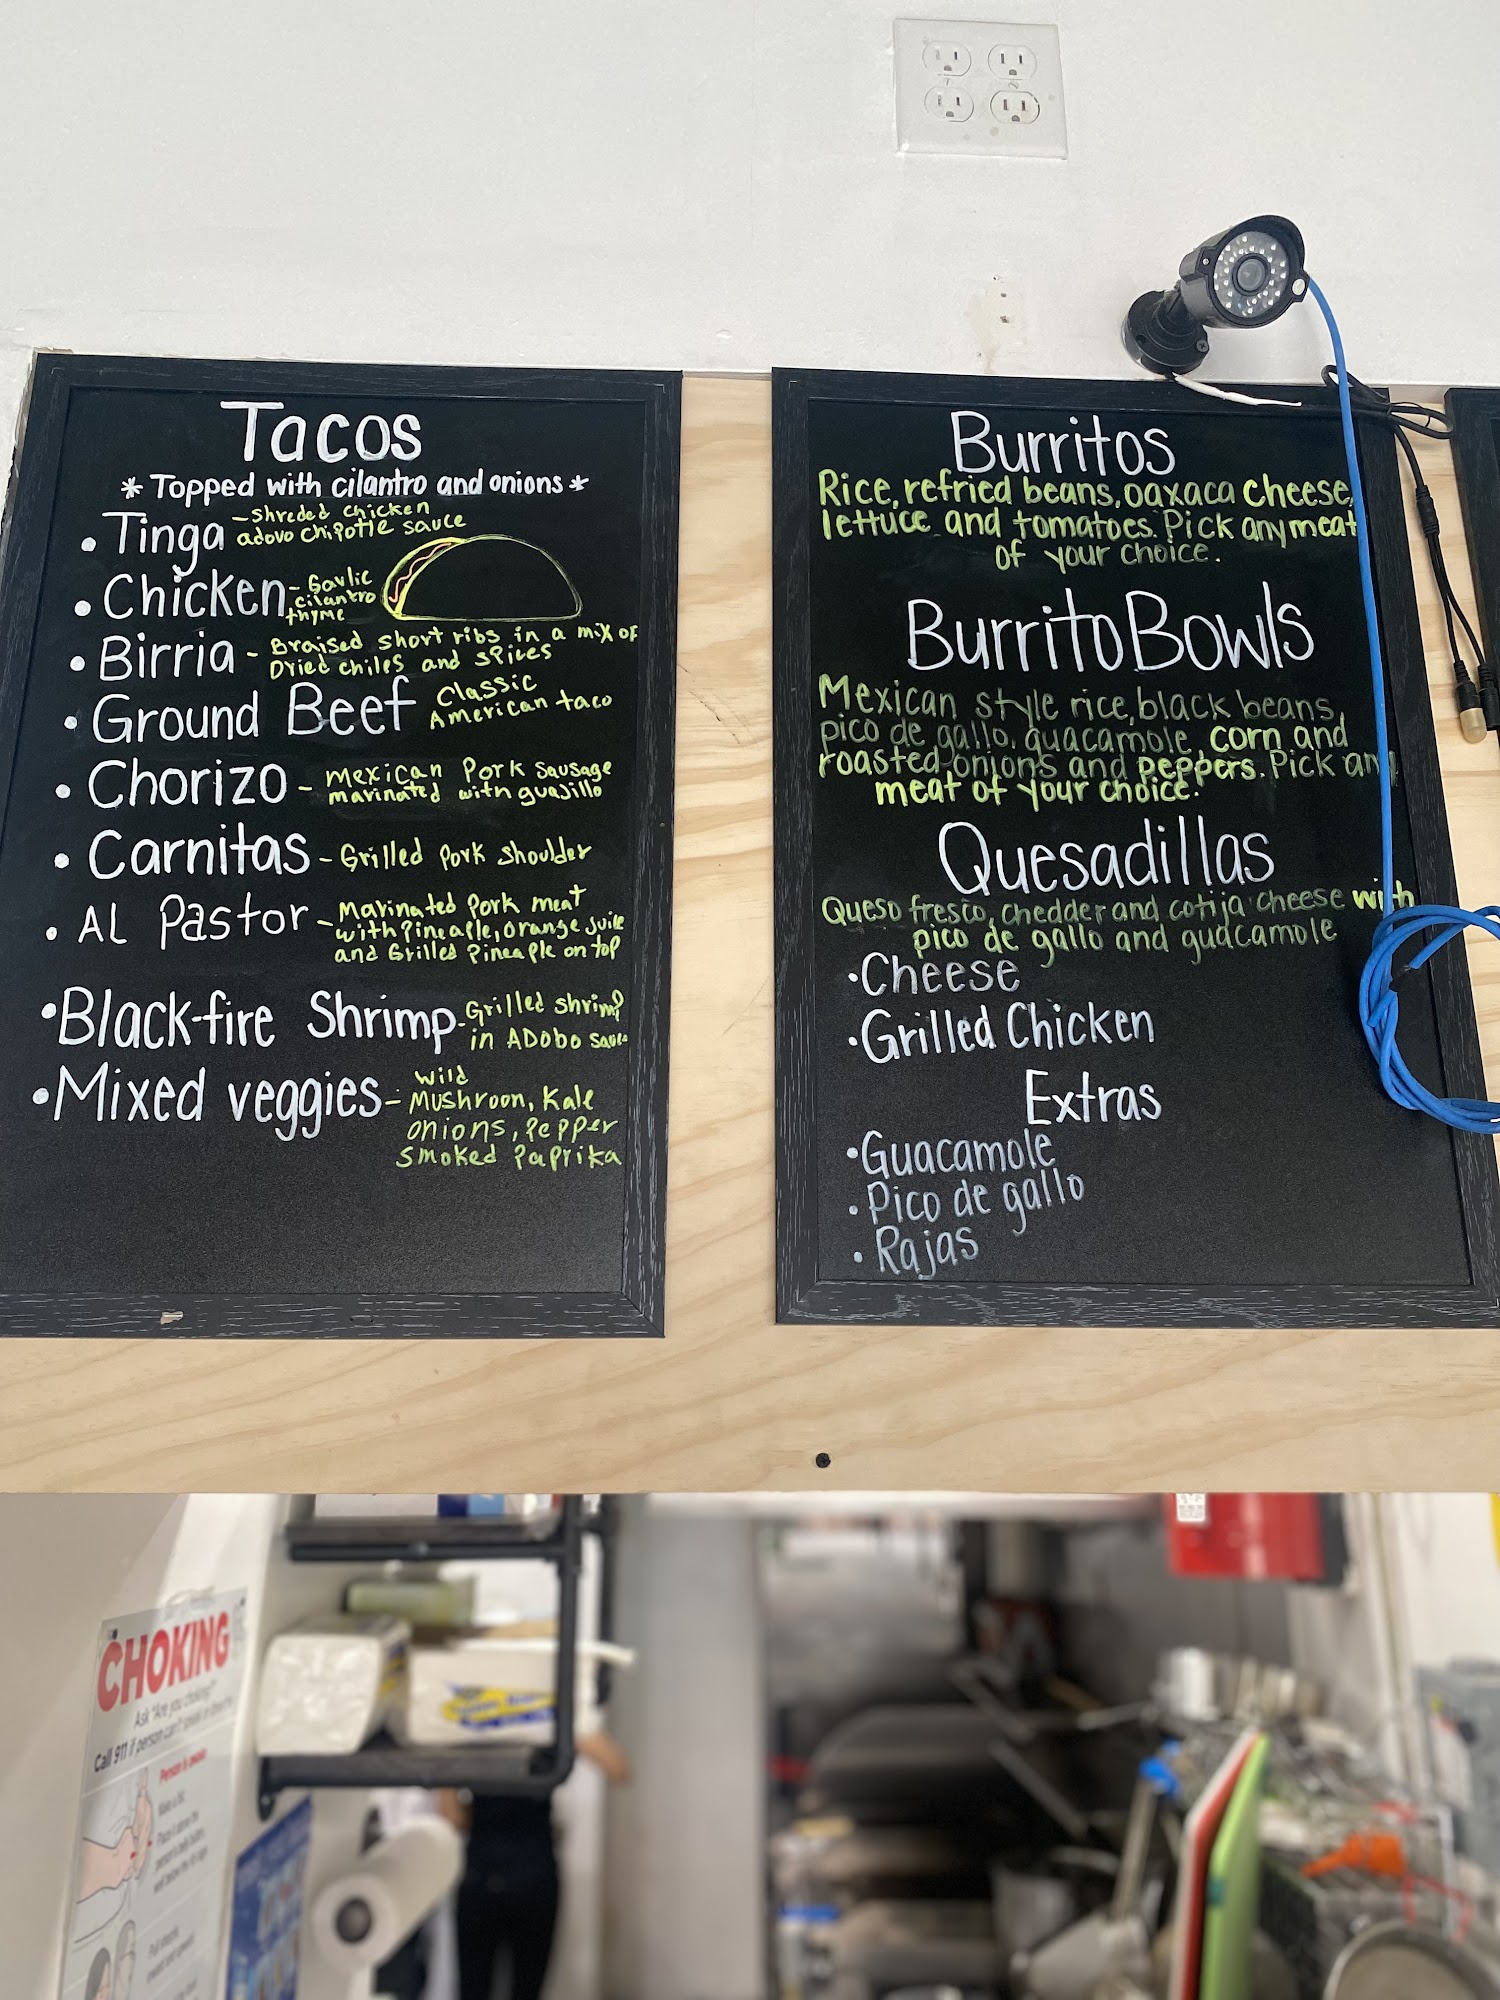 Tacos
* Topped with cilantro and onions *
• Tinga - shreded chicken
adovo chipotle sauce
• Chicken - Garlic
cilantro
thyme
• Birria - Braised short ribs in a mix of
Dried chiles and spices
• Ground Beef Classic
American taco
• Chorizo - mexican Pork sausage
marinated with guajillo
• Carnitas - Grilled pork shoulder
• AL Pastor - Marinated pork meat
with pineaple, orange juice
and Grilled Pineaple on top
• Black-fire Shrimp - Grilled shrimp
in ADobo sauce
• Mixed veggies - wild
Mushroon, Kale
onions, Pepper
smoked Paprika
Burritos
Rice, refried beans, oaxaca cheese,
lettuce and tomatoes. Pick any meat
of your choice.
Burrito Bowls
Mexican style rice, black beans,
pico de gallo, guacamole, corn and
roasted onions and peppers. Pick any
meat of your choice.
Quesadillas
Queso fresco, chedder and cotija cheese with
pico de gallo and guacamole
• Cheese
• Grilled Chicken
Extras
• Guacamole
• Pico de gallo
• Rajas
CHOKING
Ask "Are you choking?"
Call 911 if person can't speak or breathe
Person is awake